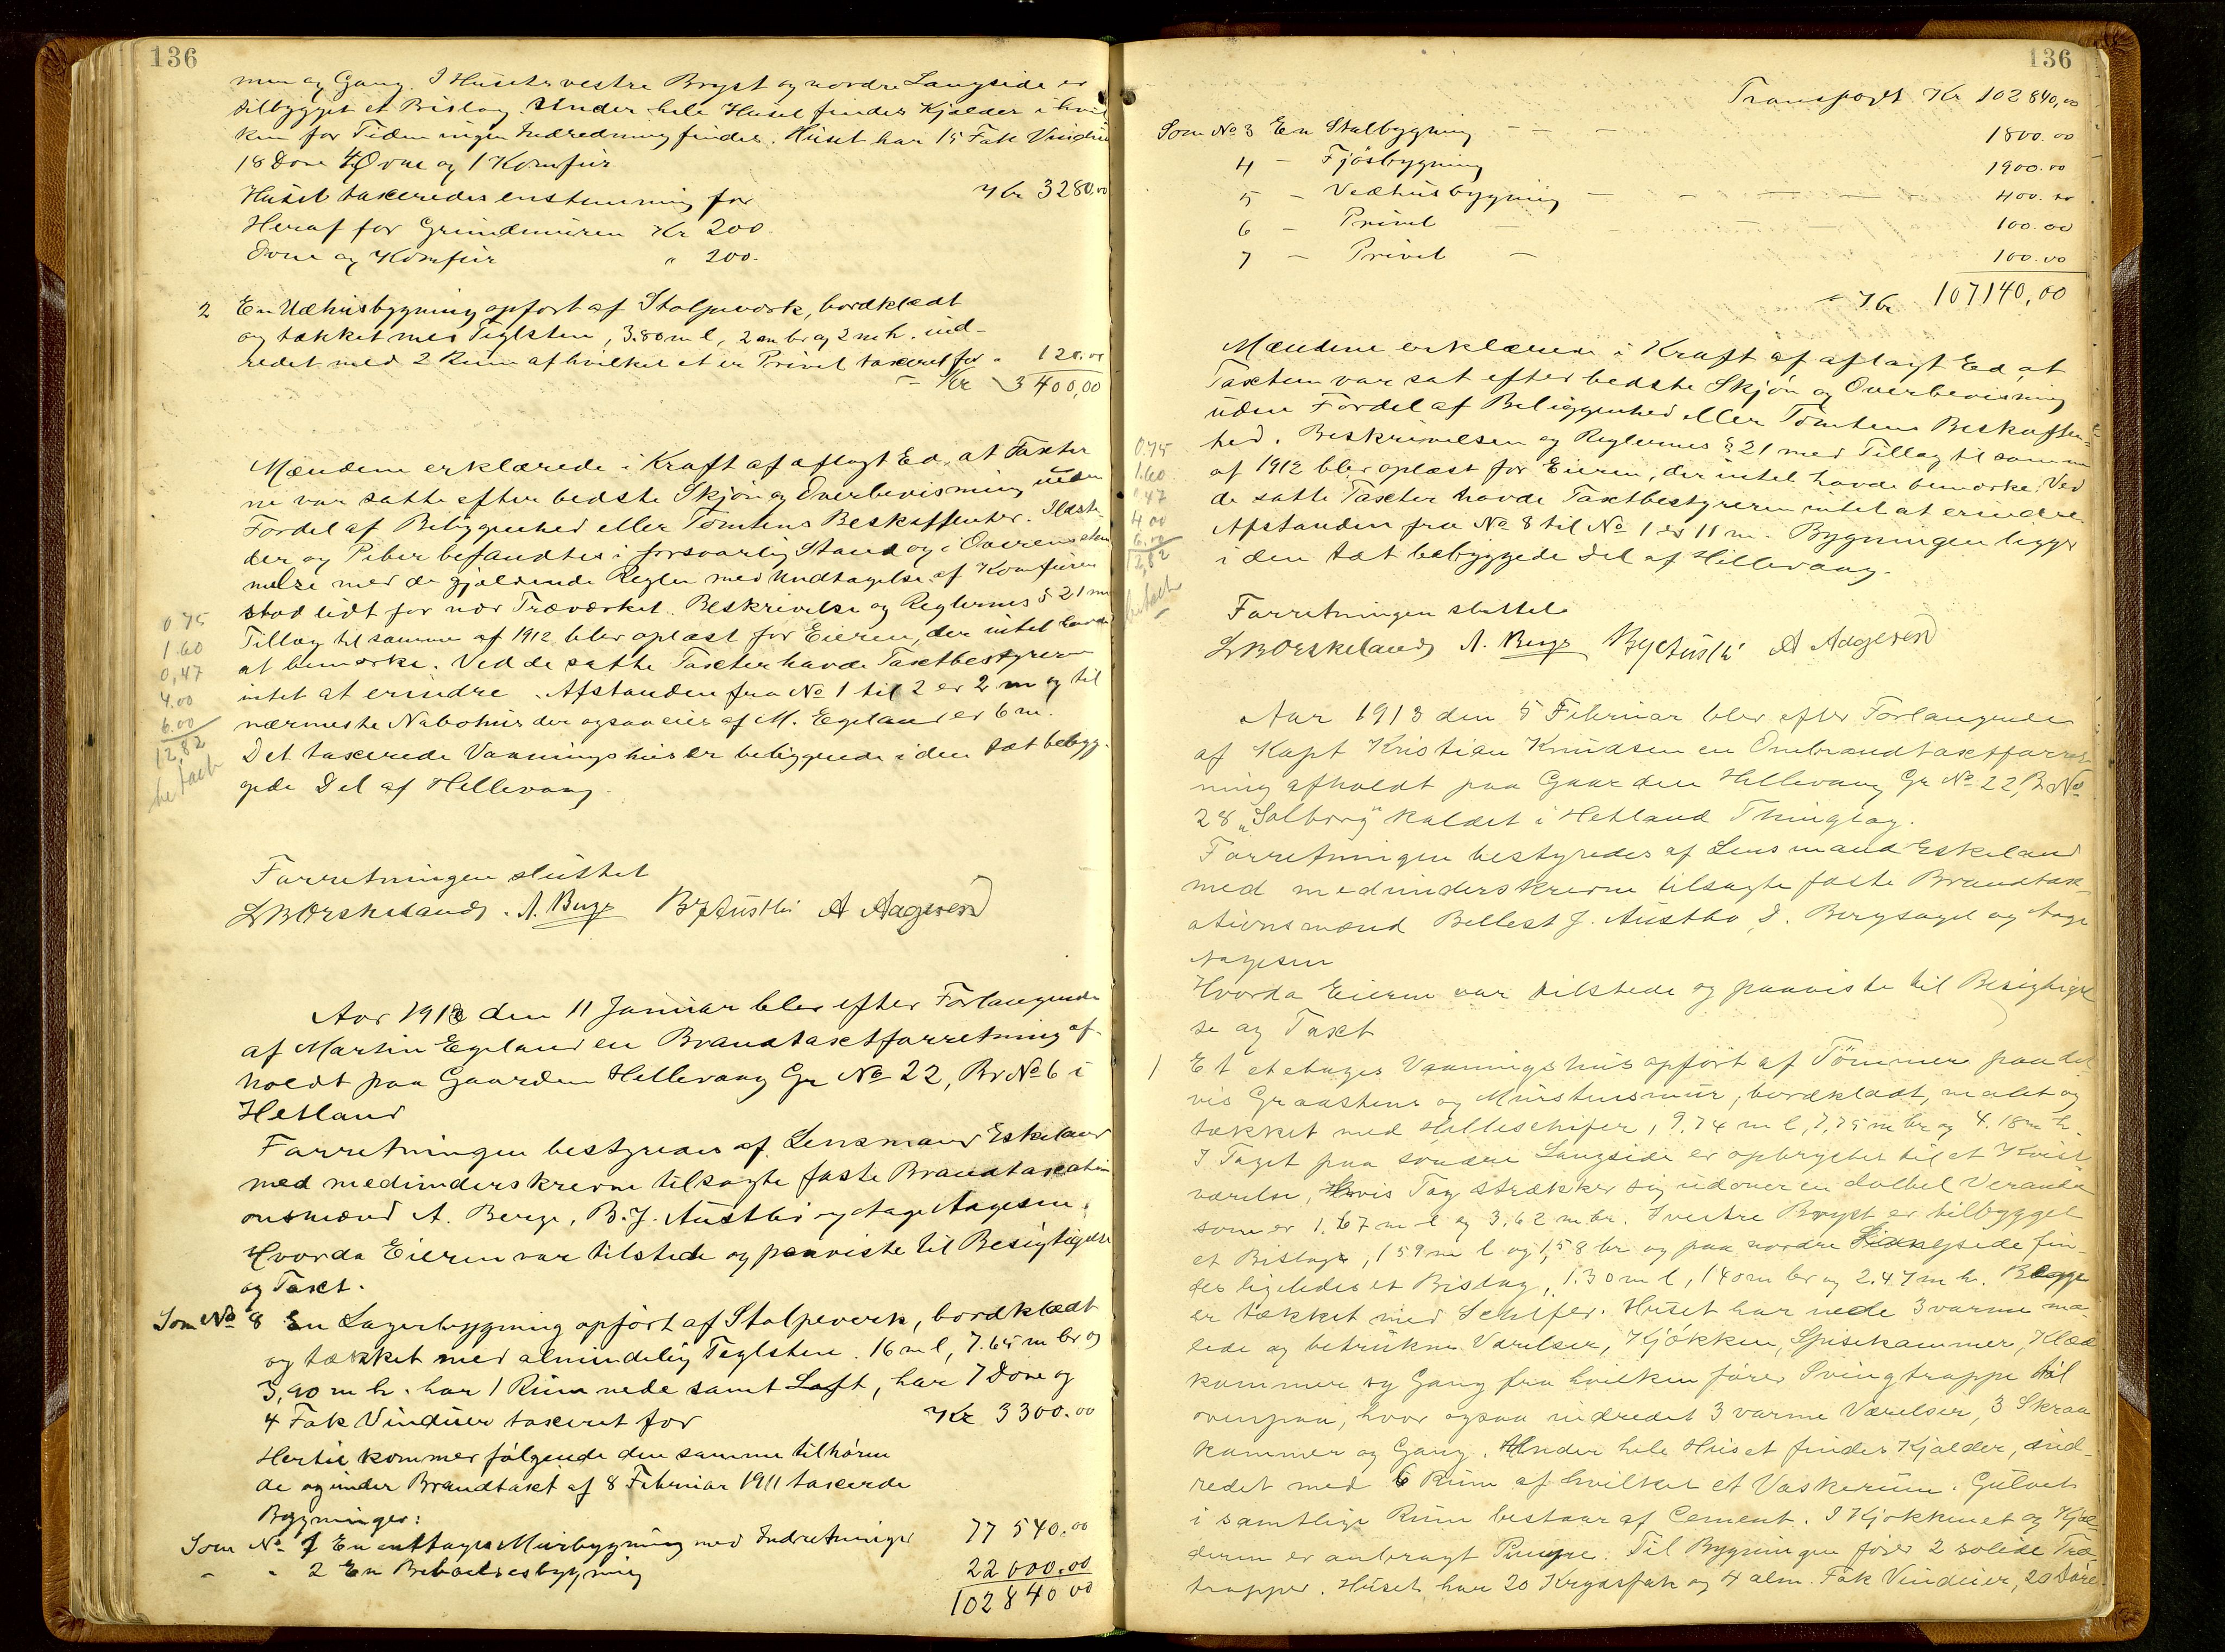 136
men og Gang. I Husets vestre Bryst og nordre Langside er
tilbygget et Bislag. Under hele Huset findes Kjælder i hvil
ken for Tiden ingen Indredning findes. Huset har 15 Fak Vinduer
18 Döre 4 Ovne og 1 Komfur
Huset taxeredes enstemmig for Kr 3280.00
Heraf for Grundmuren Kr 200.
Ovne og Komfur " 200.
2 En Udhusbygning opfört af Stolpeverk, bordklædt
og tækket med Teglsten, 3.80 m l, 2 m br og 2 m h. ind-
redet med 2 Rum af hvilket et er Privet taxeret for " 120.00
Kr 3400,00
Mændene erklærede i Kraft af aflagt Ed, at Taxter
ne var satte efter bedste Skjön og Overbevisning uden
Fordel af Bebyggenhed eller Tomtens Beskaffenhed. Ildste
der og Piber befandtes i forsvarlig Stand og i Overensstem
melse med de gjældende Regler med Undtagelse af Komfuren
stod lidt for nær Træværket. Beskrivelse og Reglernes § 21 med
Tillæg til samme af 1912 blev oplæst for Eieren, der intet havde
at bemærke. Ved de satte Taxter havde Taxtbestyreren
intet at erindre. Afstanden fra No 1 til 2 er 2 m og til
nærmeste Nabohus der ogsaa eies af M. Egeland er 6 m.
Det taxerede Vaaningshus er beliggende i den tæt bebyg-
gede Del af Hillevaag.
0.75
1.60
0,47
4.00
6.00
12,82
betalt
Forretningen sluttet
LBOrskeland. A. Berge BJAustbö A Aagesen
Aar 1913 den 11 Januar blev efter Forlangende
af Martin Egeland en Brandtaxtforretning af-
holdt paa Gaarden Hillevaag Gr No 22, Br No 6 i
Hetland
Forretningen bestyredes af Lensmand Eskeland
med medunderskrevne tilsagte faste Brandtaxati
onsmænd A. Berge, B. J. Austbö og Aage Aagesen.
Hvorda Eieren var tilstede og paaviste til Besigtigelse
og Taxt.
Som No 8 En Lagerbygning opfört af Stolpeverk, bordklædt
og tækket med almindelig Teglsten. 16 m l, 7.65 m br og
3,90 m h. har 1 Rum nede samt Loft, har 7 Döre og
4 Fak Vinduer taxeret for Kr 3300.00
Hertil kommer fölgende den samme tilhören
de og under Brandtaxt af 8 Februar 1911 taxerede
Bygninger:
Som No 1 En enetages Murbygning med Indretninger 77 540.00
" " 2 En Beboelsesbygning 22 000.00
102840 00
136
Transport Kr 102840,00
Som No 3 En Stalbygning 1800.00
4 - Fjösbygning 1900.00
5 - Vedhusbygning 400.00
6 - Privet 100.00
7 - Privet 100.00
Kr 107140,00
Mændene erklærede i Kraft af aflagt Ed, at
Taxten var sat efter bedste Skjön og Overbevisning
uden Fordel af Beliggenhed eller Tomtens Beskaffen-
hed. Beskrivelsen og Reglernes § 21 med Tillæg til samme
af 1912 blev oplæst for Eieren, der intet havde bemærke. Ved
de satte Taxter havde Taxtbestyreren intet at erindre.
Afstanden fra No 8 til No 1 er 11 m. Bygningen ligger
i den tæt bebyggede Del af Hillevaag.
0.75
1.60
0,47
4 00
6.00
12,82
betalt
Forretningen sluttet
LBOrskeland A. Berge BJAustbö A Aagesen
Aar 1913 den 5 Februar blev efter Forlangende
af Kapt Kristian Knudsen en Ombrandtaxtforret
ning afholdt paa Gaarden Hillevaag Gr No 22, B No
28 "Solborg" kaldet i Hetland Thinglag.
Forretningen bestyredes af Lensmand Eskeland
med medunderskrevne tilsagte faste Brandtax
ationsmænd Bellest J. Austbö, D. Bergsagel og Aage
Aagesen
Hvorda Eieren var tilstede og paaviste til Besigtigel
se og Taxt
1 Et etetages Vaaningshus opfört af Tömmer paa del
vis Graastens og Murstensmur, bordklædt, malet og
tækket med Helleschifer, 9.74 m l, 7.75 m br og 4.18 m h.
I Taget paa söndre Langside er opbrydet til et Kvist
værelse, hvis Tag strækker sig udover en dobbel Veranda
som er 1.67 m l og 3.62 m br. I vestre Bryst er tilbygget
et Bislag, 159 m l og 1,58 br og paa nordre Langside fin-
des ligeledes et Bislag, 1.30 m l, 140 m br og 2.47 m h. Begge
er tækket med Schifer. Huset har nede 3 varme ma-
lede og betrukne Værelser, Kjökken, Spisekammer, Klæd
kammer og Gang fra hvilken förer Svingtrappe til
ovenpaa, hvor ogsaa indredet 3 varme Værelser, 3 Skraa
kammer og Gang. Under hele Huset findes Kjælder, ind-
redet med 6 Rum af hvilket et Vaskerum. Gulvet
i samtlige Rum bestaar af Cement. I Kjökkenet og Kjæl-
deren er anbragt Pumpe. Til Bygningen förer 2 solide Træ-
trapper. Huset har 20 Krydsfak og 4 alm. Fak Vinduer, 20 Döre